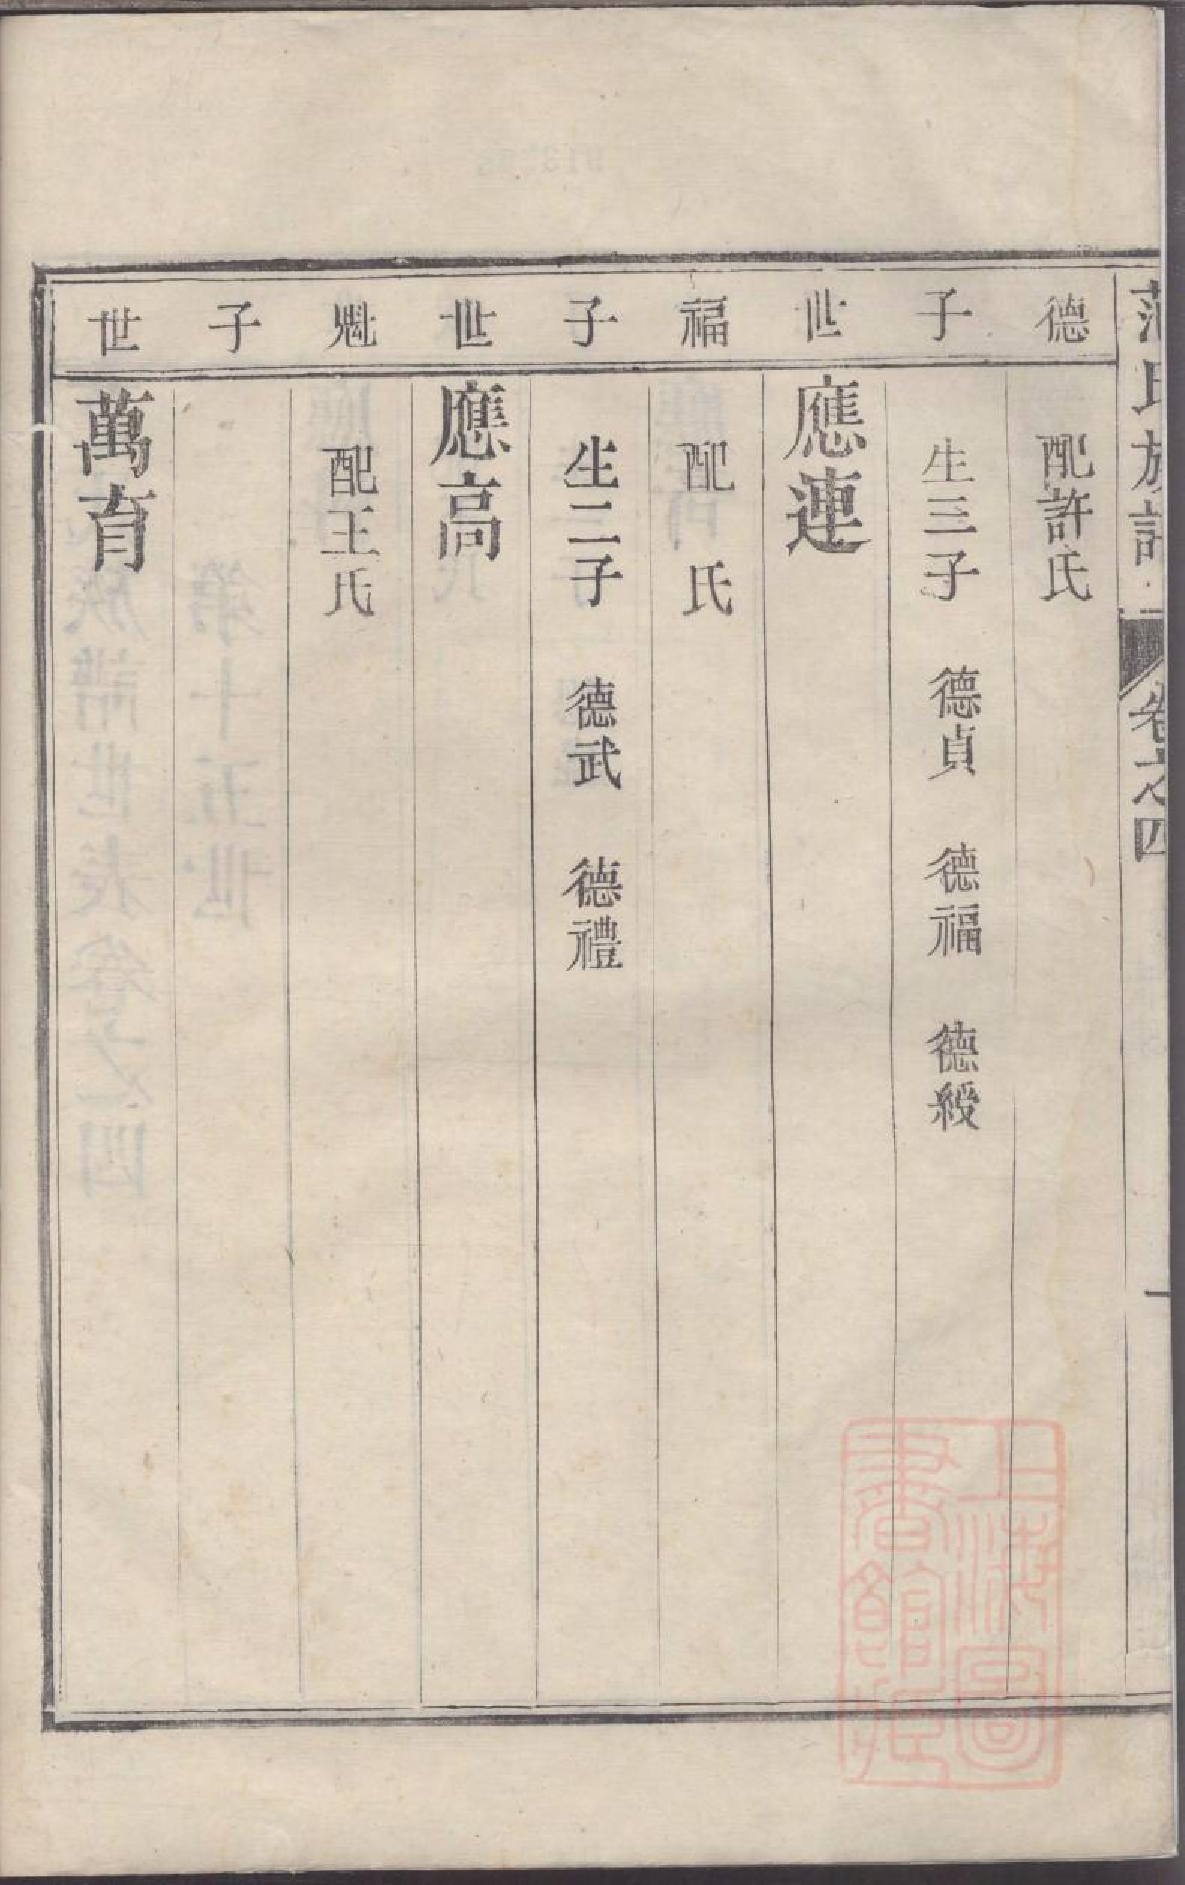 氏族譜 卷之四 一
德 配許氏
子 生三子 德貞 德福 德綬
世 應連
福 配 氏
子 生二子 德武 德禮
世 應高
魁 配王氏
子
世 萬育
上海圖
書館藏